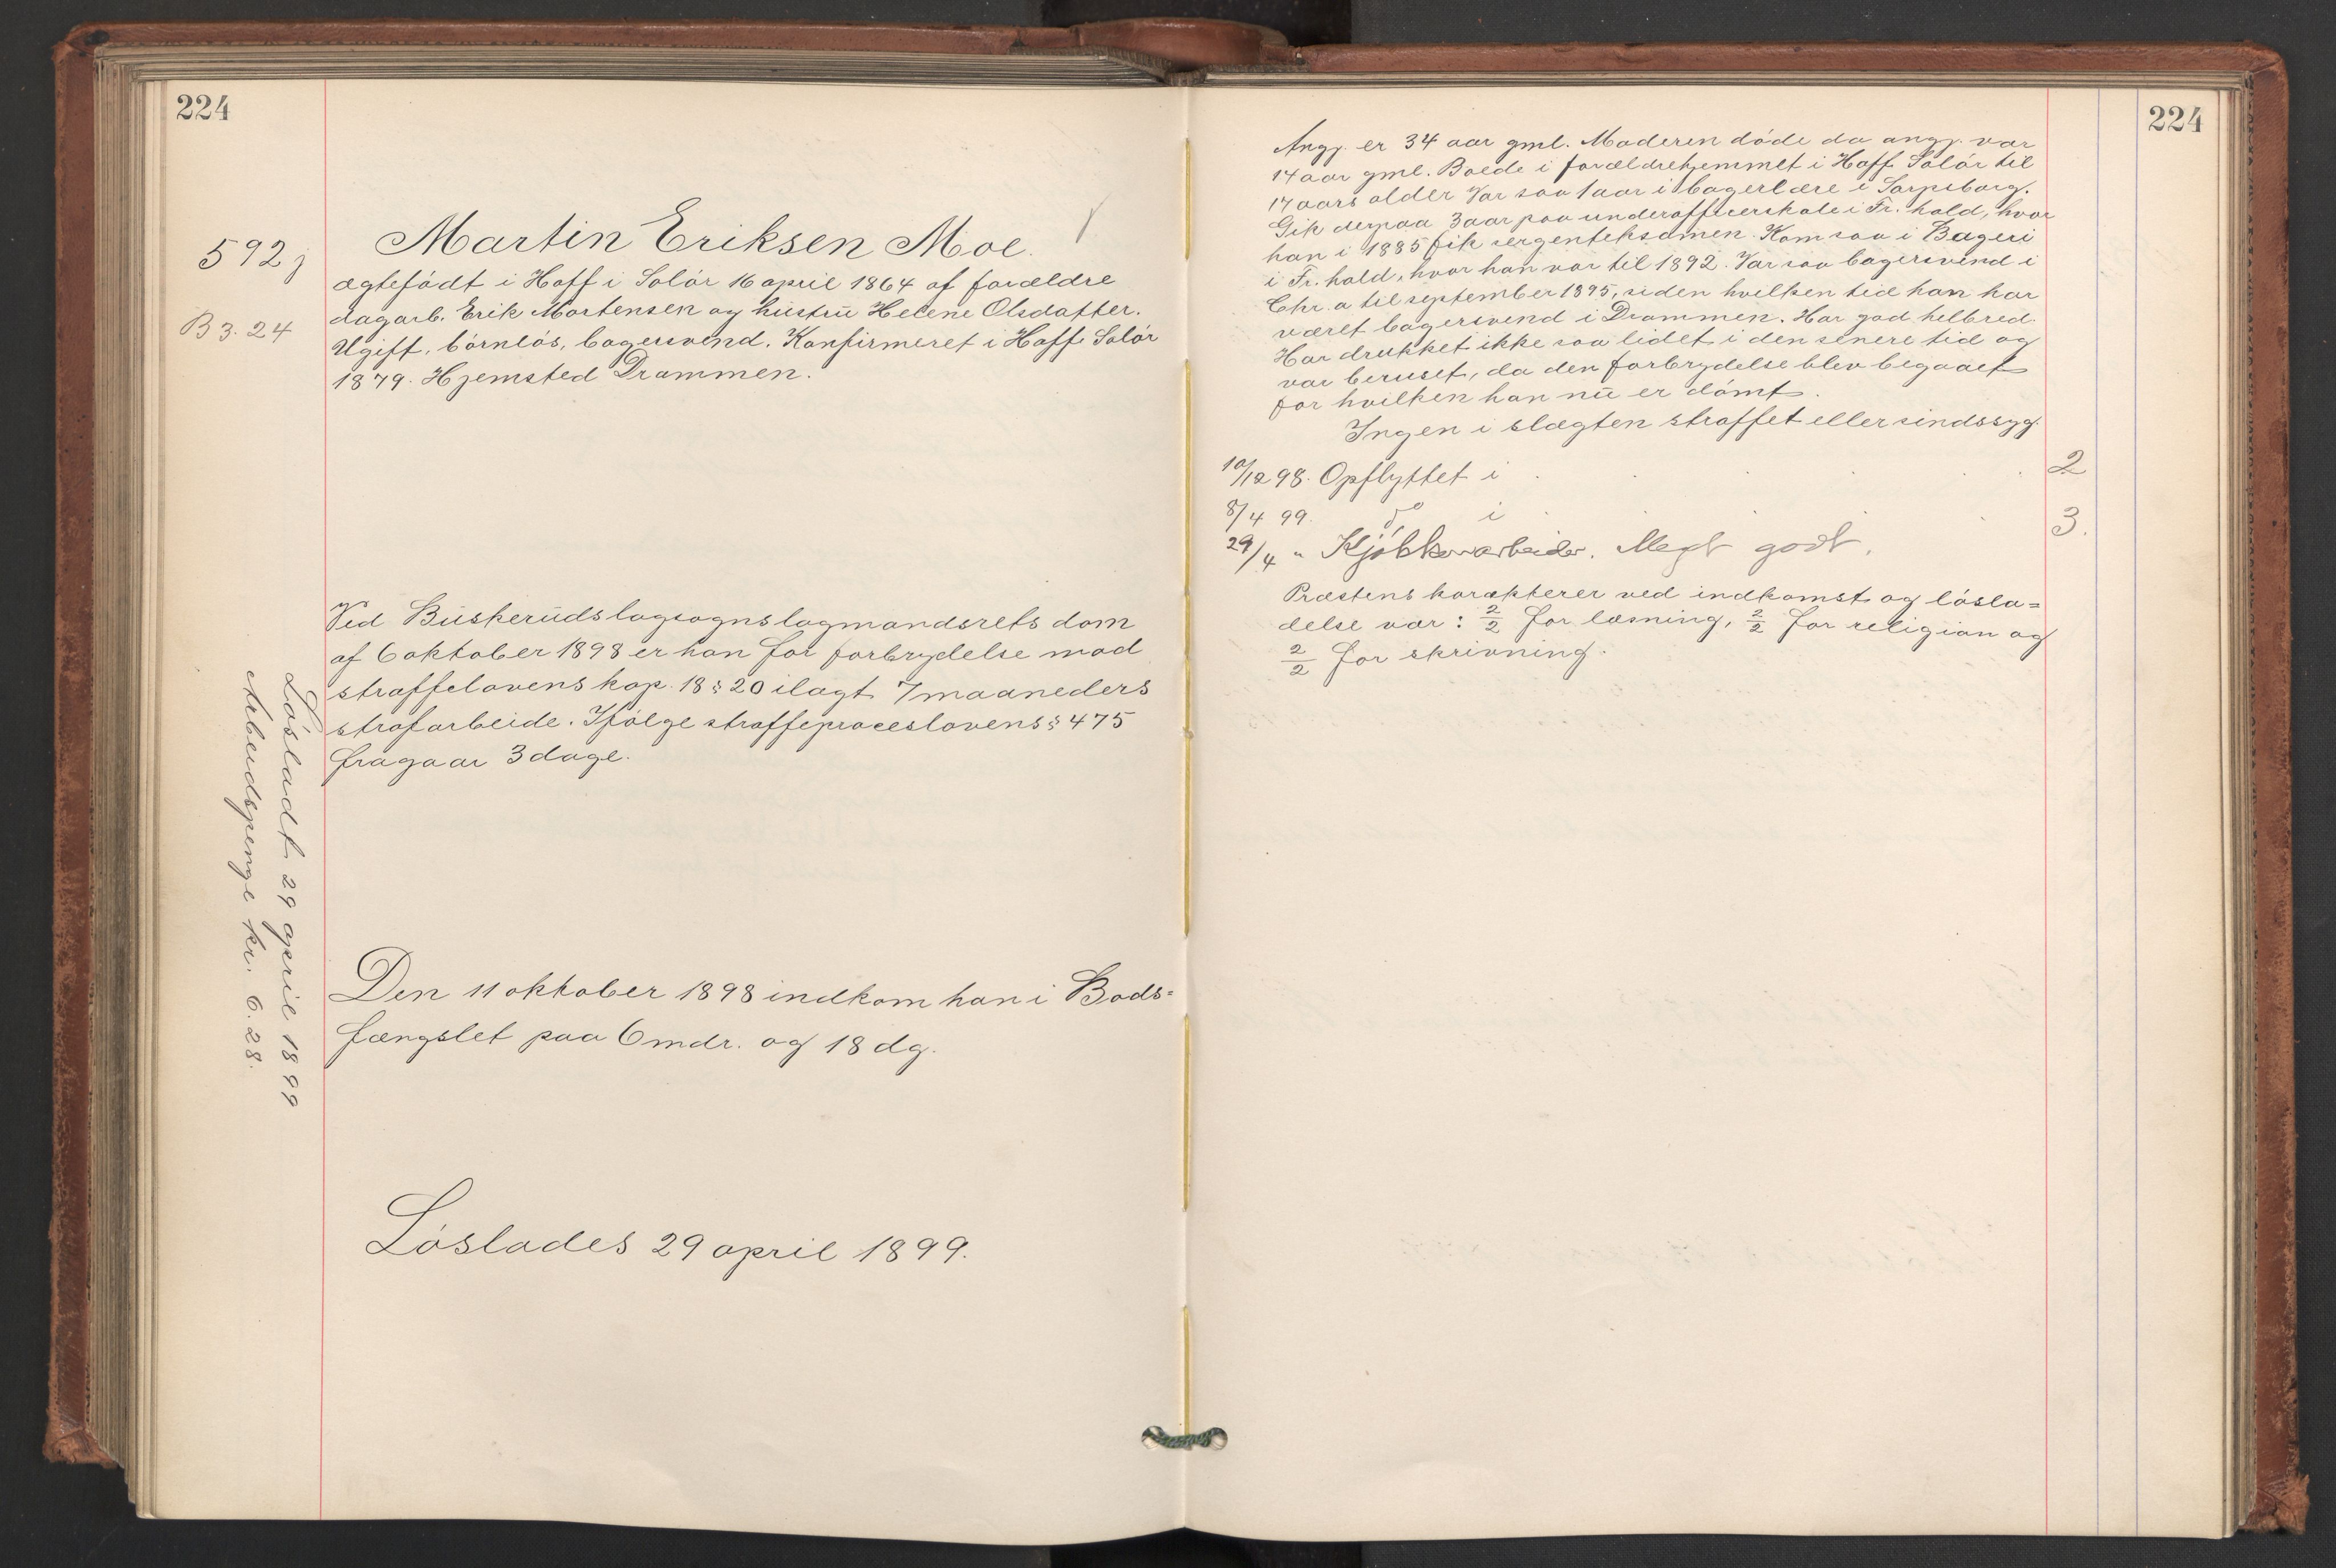 224
592j
B 3. 24
Martin Eriksen Moe.
ægtefødt i Hoff i Solør 16 april 1864 af forældre
dagarb. Erik Mortensen og hustru Helene Olsdatter.
Ugift, børnløs, bagersvend. Konfirmeret i Hoff Solør
1879. Hjemsted Drammen.
Ved Buskeruds lagsogns lagmandsrets dom
af 6 oktober 1898 er han for forbrydelse mod
straffelovens kap. 18 § 20 ilagt 7 maaneders
strafarbeide. Ifølge straffeproceslovens § 475
fragaar 3 dage.
Den 11 oktober 1898 indkom han i Bods=
fængslet paa 6 mdr. og 18 dg.
Løsladt 29 april 1899
Arbeidspenge kr. 6.28.
Løslades 29 april 1899.
224
Angj. er 34 aar gml. Moderen døde da angj. var
14 aar gml. Boede i forældrehjemmet i Hoff Solør til
17 aars alder Var saa 1 aar i bagerlære i Sarpsborg.
Gik derpaa 3 aar paa underofficerskole i Fr. hald, hvor
han i 1885 fik sergenteksamen. Kom saa i Bageri
i Fr. hald, hvor han var til 1892. Var saa bagersvend i
Chr. a til september 1895, siden hvilken tid han har
været bagersvend i Drammen. Har god helbred.
Har drukket ikke saa lidet i den senere tid og
var beruset, da den forbrydelse blev begaaet
for hvilken han nu er dømt.
Ingen i slægten straffet eller sindssyg.
10/12 98. Opflyttet i . . . 2
8/4 99. do i . . 3.
29/4 " Kjøkkenarbeider. Meget godt.
Præstens karakterer ved indkomst og løsla=
delse var: 2/2 for læsning, 2/2 for religion og
2/2 for skrivning.